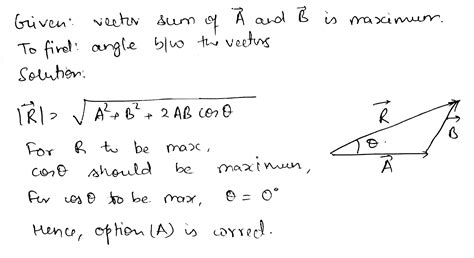 Given: vector sum of A⃗ and B⃗ is maximum.
To find: angle b/w the vectors
Solution:
|R⃗| = √A² + B² + 2 AB cos θ
For R to be max,
cosθ should be maximum,
For cos θ to be max, θ = 0°
Hence, option (A) is correct.
R⃗
θ
B⃗
A⃗